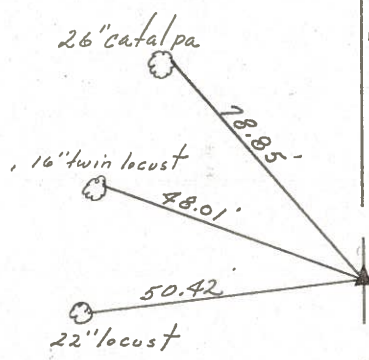 26" catalpa
78.85'
16" twin locust
48.01'
50.42'
22" locust